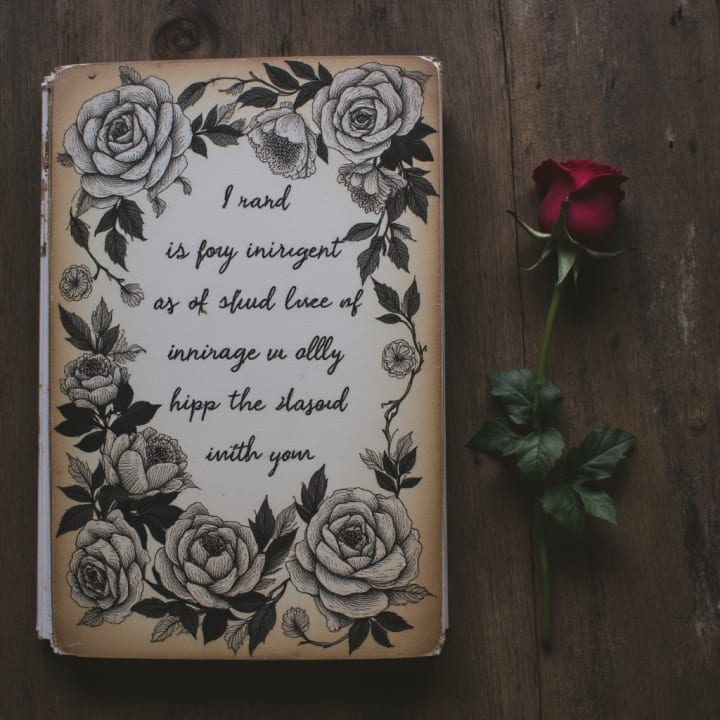 I rand
is fouy inirigent
as of shud lvee of
innirage w ollly
hipp the slasoud
inith your